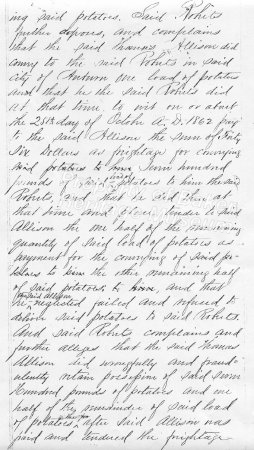 ing said potatoes. Said Roberts
further deposes, and complains
that the said Francis Allison did
convey to the said Roberts in said
city of Auburn one load of potatoes
and that he the said Roberts did
at that time to wit on or about
the 25th day of October A.D. 1862 pay
to the said Allison the sum of Forty
Six Dollars as freightage for conveying
said potatoes to him Seven hundred
pounds of said potatoes to him the said
Roberts, and that he did then at
that time and place tender to said
Allison the one half of the remaining
quantity of said load of potatoes as
payment for the conveying of said po-
tatoes to him the other remaining half
of said potatoes to him, and that
he, the said Allison
neglected failed and refused to
deliver said potatoes to said Roberts.
And said Roberts complains and
further alleges that the said Francis
Allison did wrongfully and fraud-
ulently retain possession of said Seven
Hundred pounds of potatoes and one
half of the remainder of said load
of potatoes, after said Allison was
paid and tendered the freightage